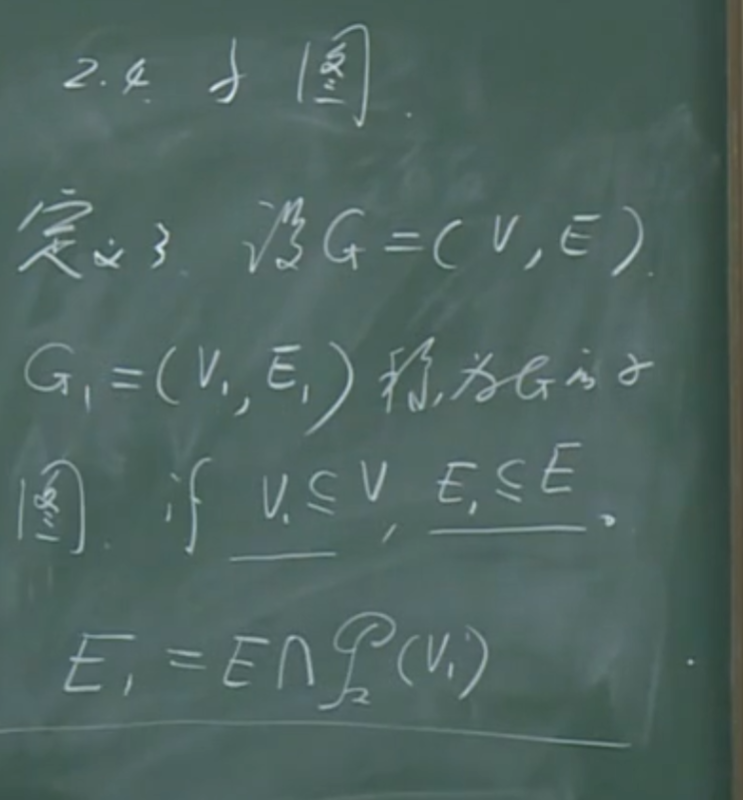 2.4 子图.
定义3. 设G=(V,E).
G₁=(V₁,E₁)称为G的子
图. if V₁⊆V, E₁⊆E.
E₁=E∩𝒫₂(V₁)